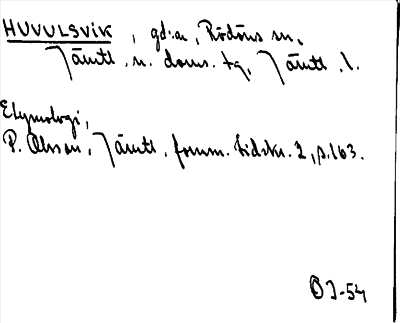 HUVULSVIK, gd:ar, Rödöns sn,
Jämtl. n. doms. tg, Jämtl. l.
Etymologi,
P. Olsson, Jämtl. fornm. tidskr. 2, s. 163.
BJ-54